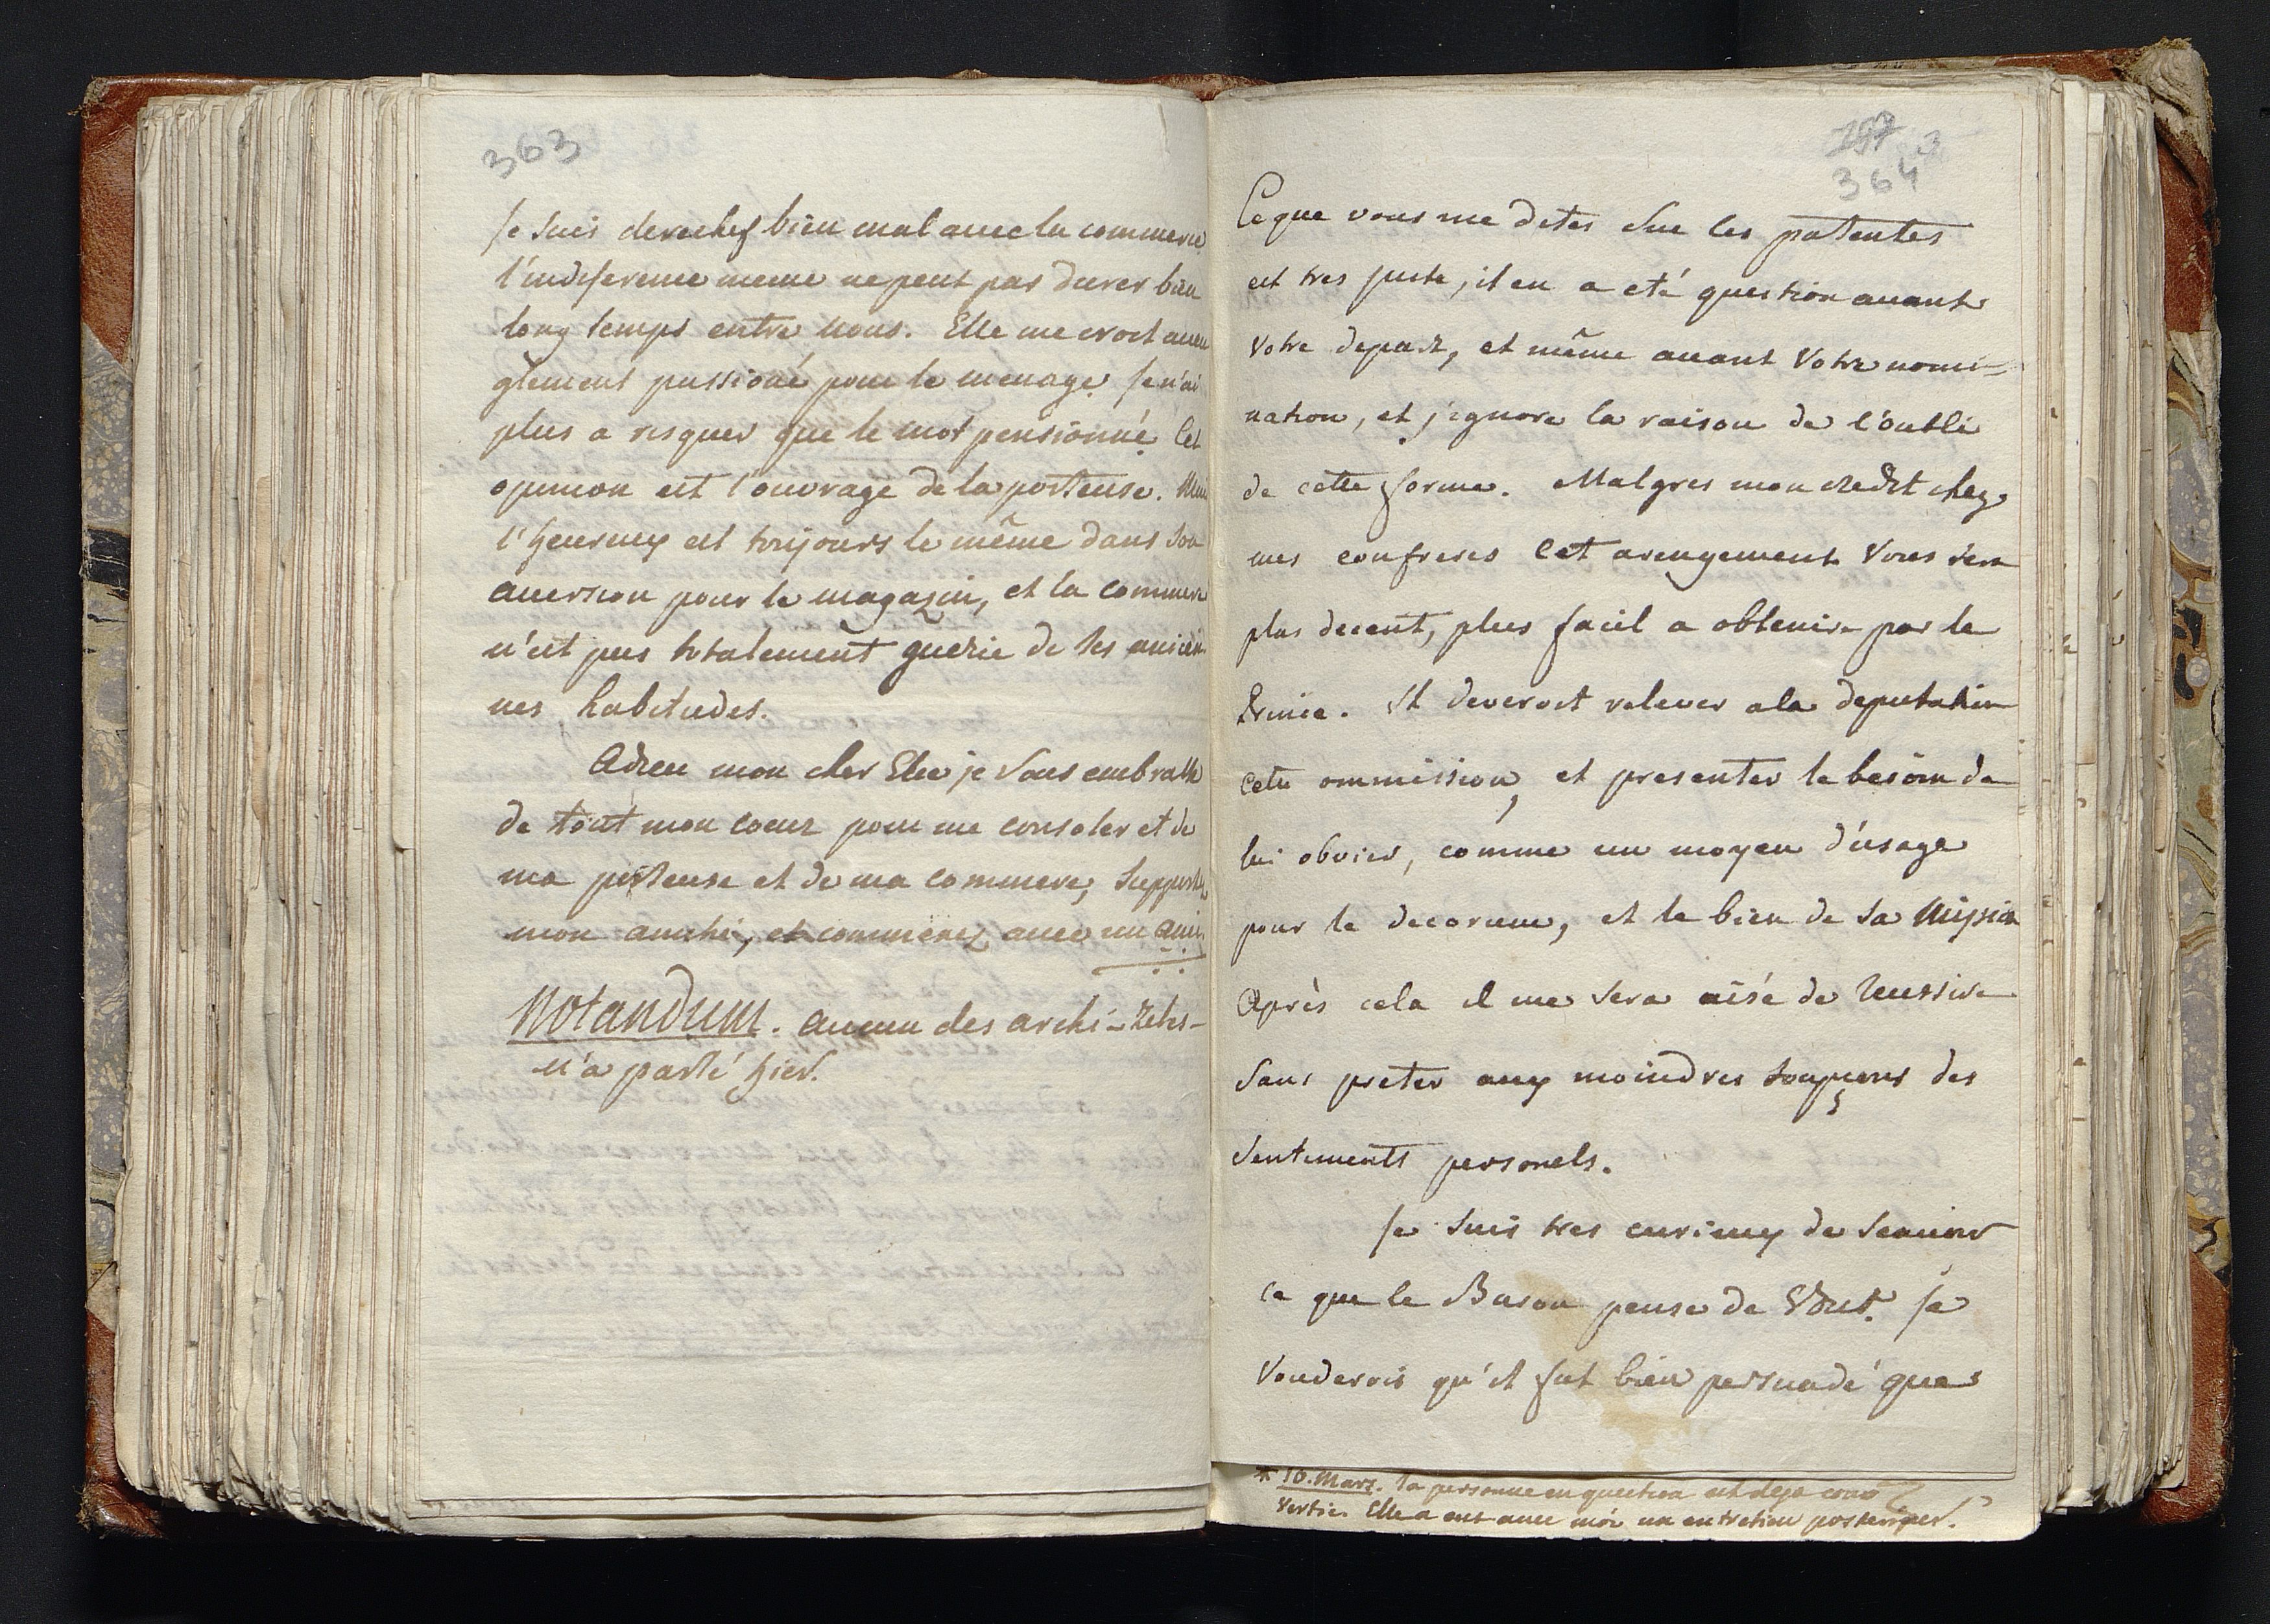 363
Je suis derechef bien mal avec la commere
l'indiference meme ne peut pas durer bien
long temps entre nous. Elle me croit aveu
glement passioné pour le menage. Je n'ai
plus a risquer que le mot pensionné. Cet
opinion est l'ouvrage de la porteuse.
l'heureux est toujours le même dans son
aversion pour le magazin, et la commere
n'est pas totalement guerie de ses ancien
nes habitudes.
Adieu mon cher Elie je vous embrasse
de tout mon coeur pour me consoler et de
ma porteuse et de ma commere, supportez
mon amitié, et commerez avec un ami
Notandum. aucun des archi-zeles-
n'a parlé hier.
197
364
Ce que vous me dites sur les patentes
est tres juste, il en a eté question avant
votre depart, et même avant votre nomi=
nation, et j'ignore la raison de l'oubli
de cette forme. Malgres mon credit chez
mes confreres cet arengement vous sera
plus decent, plus facil a obtenir par le
Prince. Il deveroit relever a la deputation
cette ommission, et presenter le besoin de
lui obvier, comme un moyen d'usage
pour le decorum, et le bien de sa Mission
Après cela il me sera aisé de reussir
sans preter aux moindres soupçons des
sentiments personels.
Je suis tres curieux de scavoir
ce que le Baron pense de Vous. Je
vouderois qu'il fut bien persuadé que
* 10. Mars. la personne en question est deja con
vertie. Elle a eut avec moi un entretien posterieur.